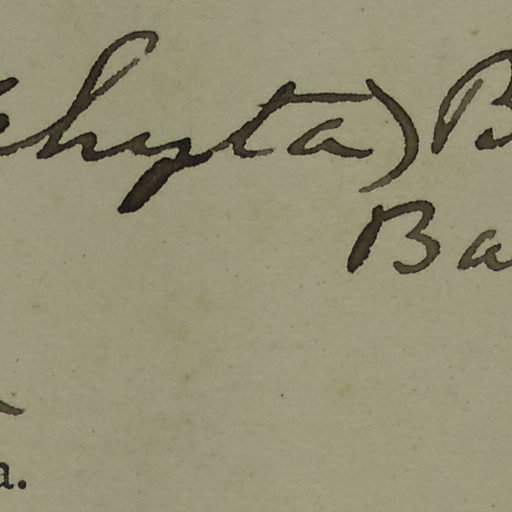 hyta) B
Ba
a.